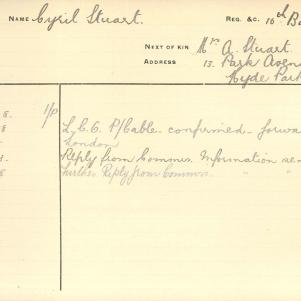 NAME Cyril Stuart. REG. &C. 10th Ba
NEXT OF KIN Mrs A. Stuart
ADDRESS 13. Park Avenu
Hyde Park
1/P L.C.C. P/Cable confirmed - forwa
London
Reply from Commrs. Information sen
Further Reply from Commrs. " "